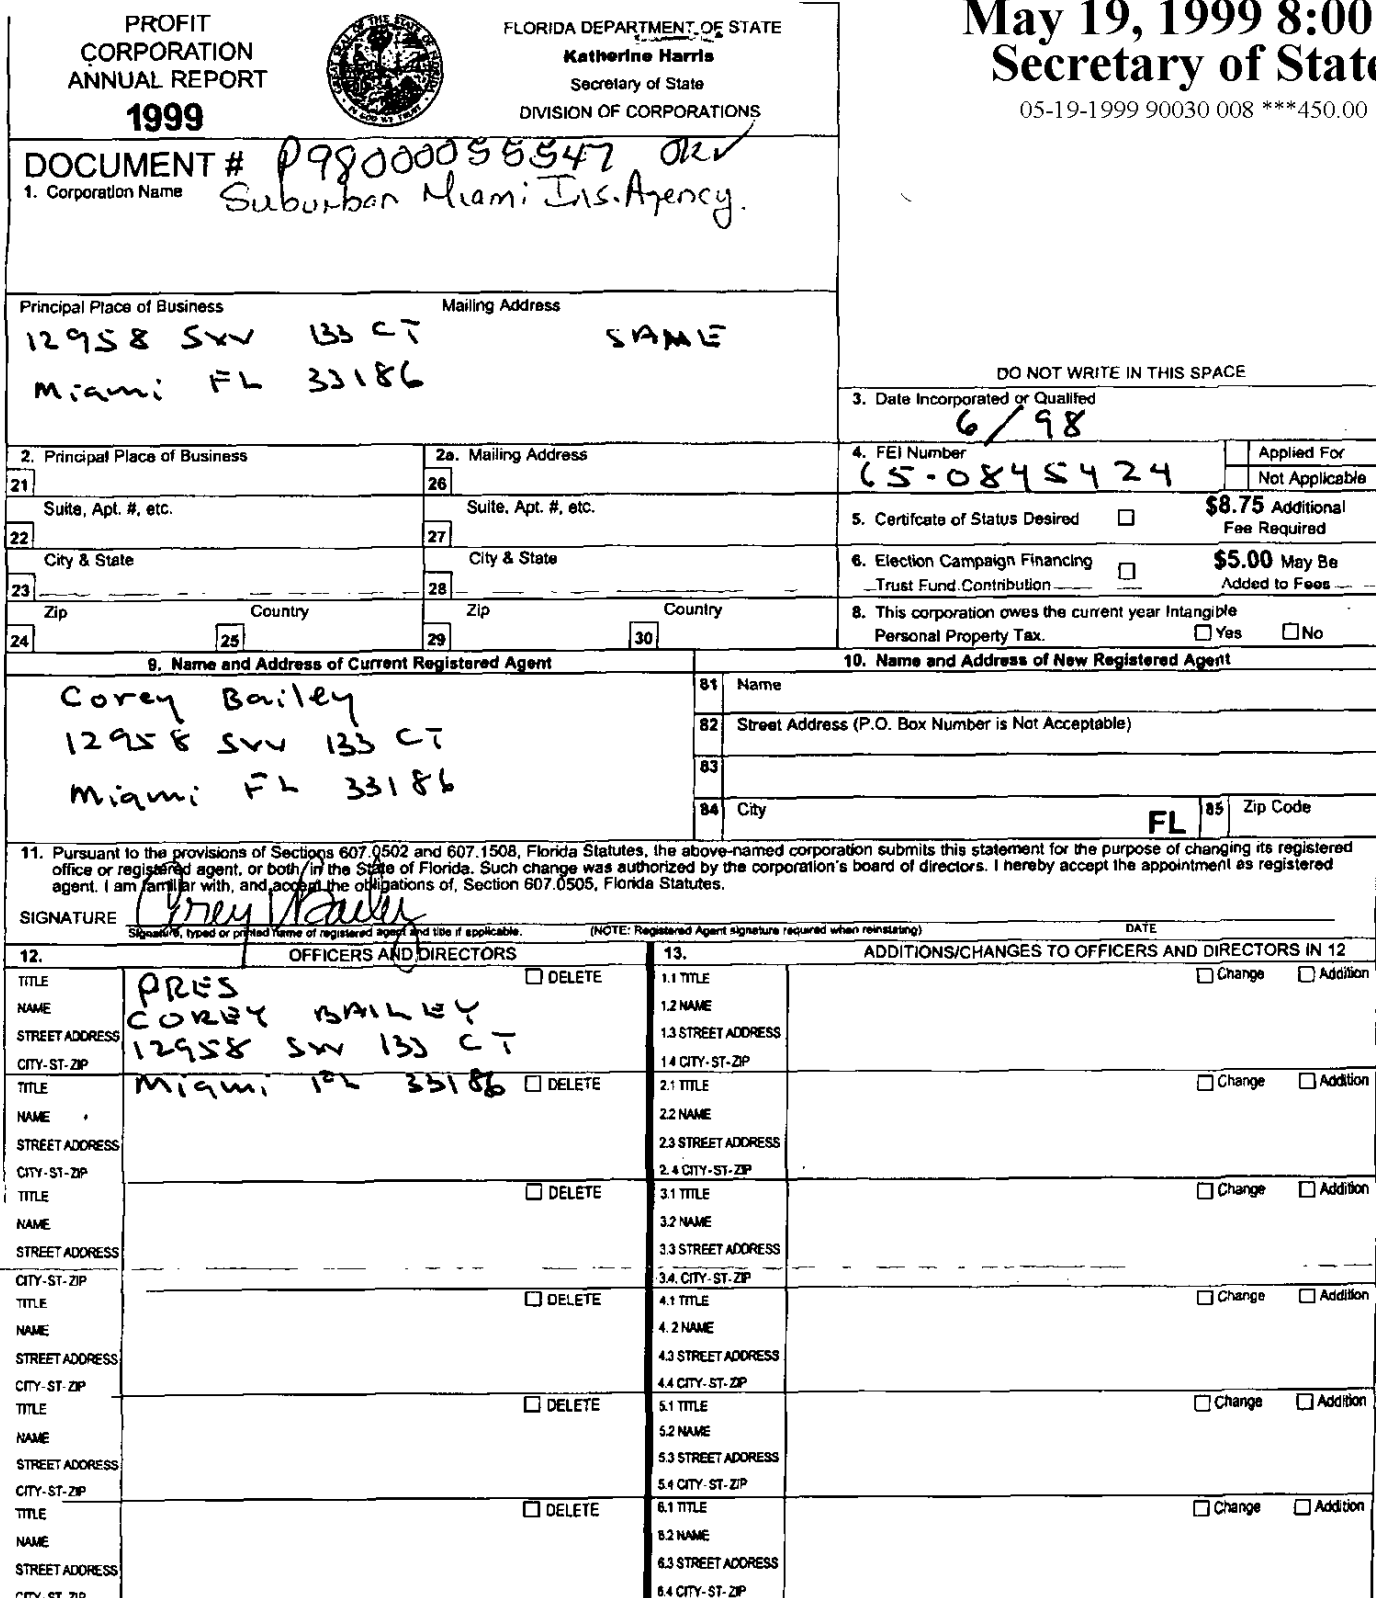 PROFIT
CORPORATION
ANNUAL REPORT
1999
FLORIDA DEPARTMENT OF STATE
Katherine Harris
Secretary of State
DIVISION OF CORPORATIONS
May 19, 1999 8:00
Secretary of State
05-19-1999 90030 008 ***450.00
DOCUMENT # P98000055547 OK
1. Corporation Name Suburban Miami Ins. Agency.
Principal Place of Business
12958 SW 133 CT
Miami FL 33186
Mailing Address
SAME
DO NOT WRITE IN THIS SPACE
3. Date Incorporated or Qualifed
6/98
2. Principal Place of Business
21
Suite, Apt. #, etc.
22
City & State
23
Zip
24
Country
25
2a. Mailing Address
26
Suite, Apt. #, etc.
27
City & State
28
Zip
29
Country
30
4. FEI Number
65-0845424
Applied For
Not Applicable
5. Certifcate of Status Desired
$8.75 Additional
Fee Required
6. Election Campaign Financing
Trust Fund Contribution
$5.00 May Be
Added to Fees
8. This corporation owes the current year Intangible
Personal Property Tax. Yes No
9. Name and Address of Current Registered Agent
Corey Bailey
12958 SW 133 CT
Miami FL 33186
10. Name and Address of New Registered Agent
81 Name
82 Street Address (P.O. Box Number is Not Acceptable)
83
84 City FL 85 Zip Code
11. Pursuant to the provisions of Sections 607.0502 and 607.1508, Florida Statutes, the above-named corporation submits this statement for the purpose of changing its registered
office or registered agent, or both, in the State of Florida. Such change was authorized by the corporation's board of directors. I hereby accept the appointment as registered
agent. I am familiar with, and accept the obligations of, Section 607.0505, Florida Statutes.
SIGNATURE Corey Bailey
Signature, typed or printed name of registered agent and title if applicable. (NOTE: Registered Agent signature required when reinstating) DATE
12. OFFICERS AND DIRECTORS
TITLE PRES DELETE
NAME COREY BAILEY
STREET ADDRESS 12958 SW 133 CT
CITY-ST-ZIP Miami FL 33186
TITLE DELETE
NAME
STREET ADDRESS
CITY-ST-ZIP
TITLE DELETE
NAME
STREET ADDRESS
CITY-ST-ZIP
TITLE DELETE
NAME
STREET ADDRESS
CITY-ST-ZIP
TITLE DELETE
NAME
STREET ADDRESS
CITY-ST-ZIP
TITLE DELETE
NAME
STREET ADDRESS
CITY-ST-ZIP
13. ADDITIONS/CHANGES TO OFFICERS AND DIRECTORS IN 12
1.1 TITLE Change Addition
1.2 NAME
1.3 STREET ADDRESS
1.4 CITY-ST-ZIP
2.1 TITLE Change Addition
2.2 NAME
2.3 STREET ADDRESS
2.4 CITY-ST-ZIP
3.1 TITLE Change Addition
3.2 NAME
3.3 STREET ADDRESS
3.4. CITY-ST-ZIP
4.1 TITLE Change Addition
4.2 NAME
4.3 STREET ADDRESS
4.4 CITY-ST-ZIP
5.1 TITLE Change Addition
5.2 NAME
5.3 STREET ADDRESS
5.4 CITY-ST-ZIP
6.1 TITLE Change Addition
6.2 NAME
6.3 STREET ADDRESS
6.4 CITY-ST-ZIP